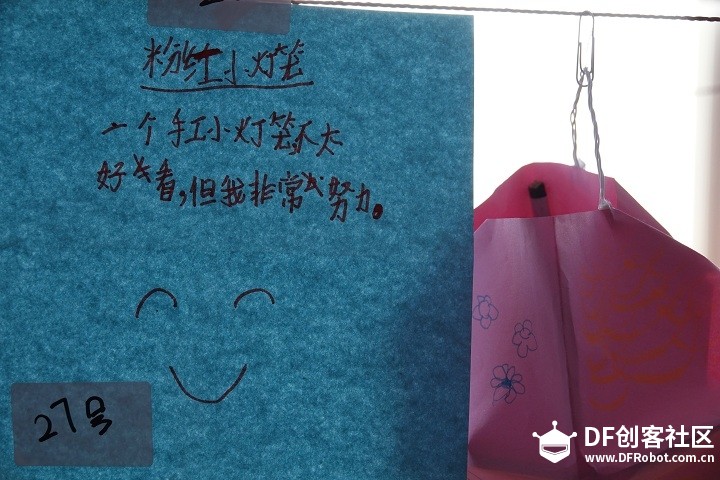 粉红小灯笼
一个手工小灯笼,不太
好看,但我非常努力。
27号
DF创客社区
www.DFRobot.com.cn